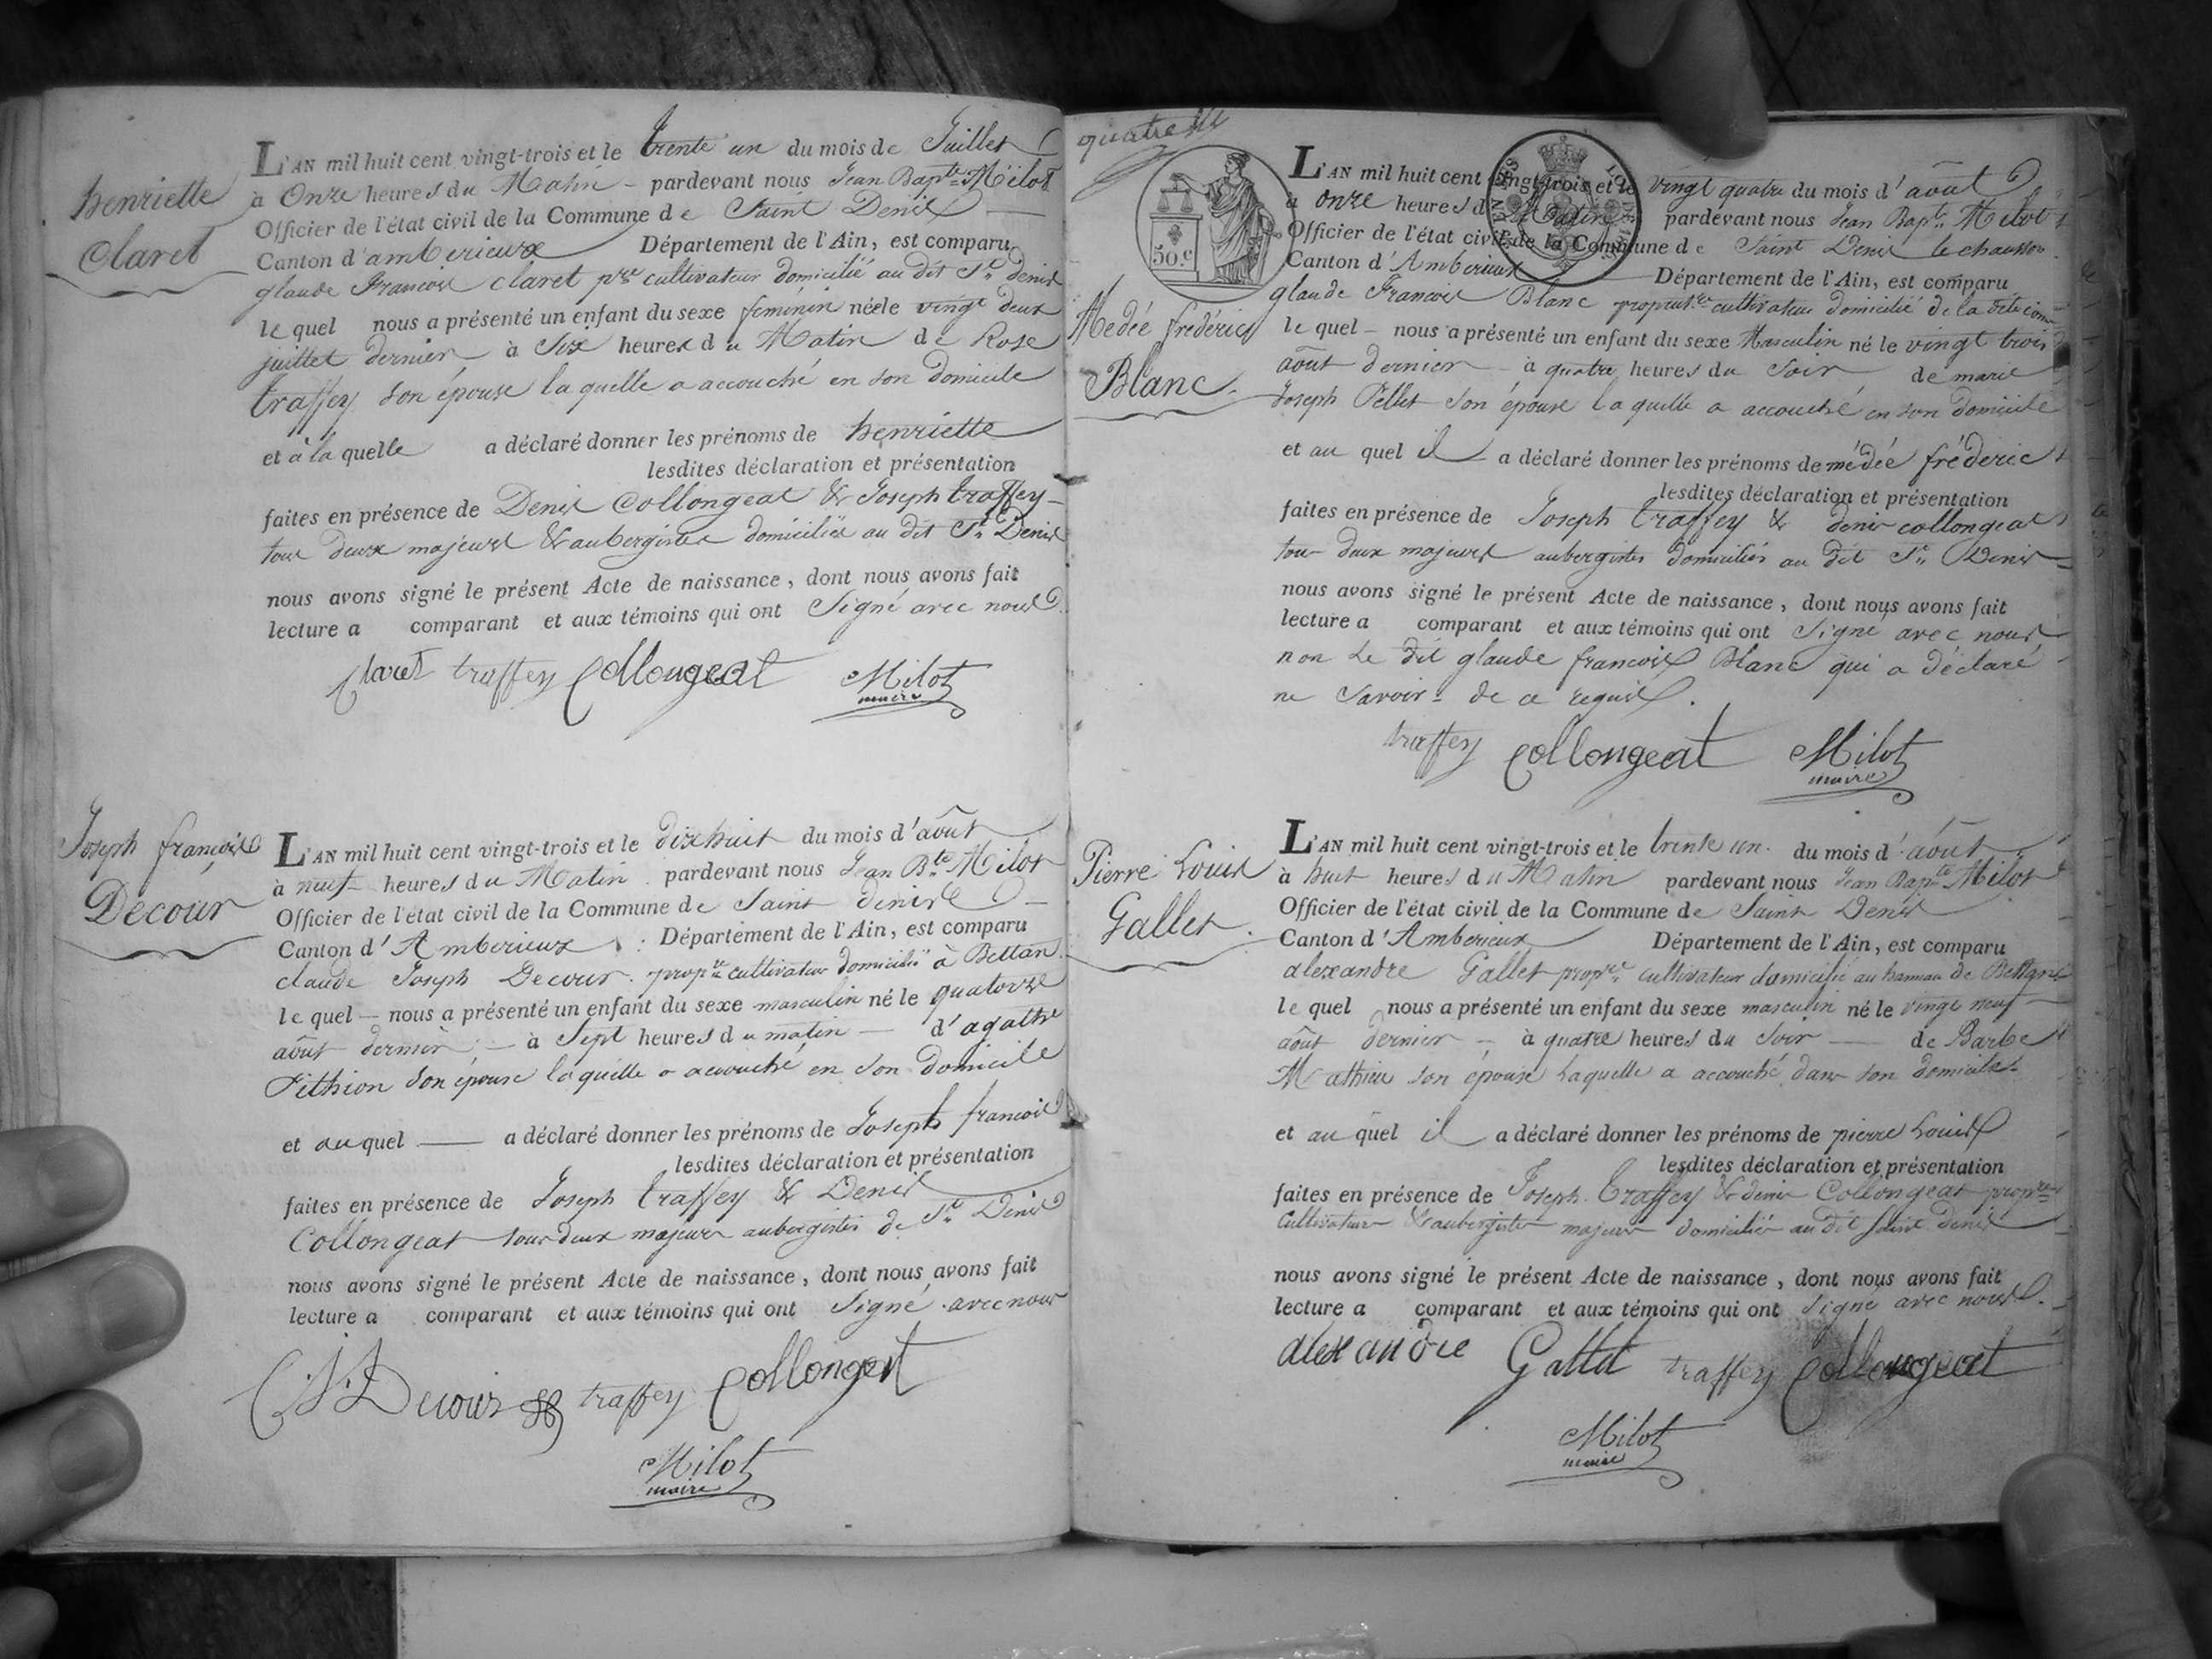 henriette
Claret
L'AN mil huit cent vingt-trois et le trente un du mois de Juillet
à Onze heures du Matin - pardevant nous Jean Bapte Milot
Officier de l'état civil de la Commune de Saint Denis
Canton d'amberieux Département de l'Ain, est comparu
glaude François claret pre cultivateur domicilié au dit St denis
le quel nous a présenté un enfant du sexe feminin née le vingt deux
juillet dernier à Six heures du Matin de Rose
traffey son épouse la quelle a accouché en son domicile
et à la quelle a déclaré donner les prénoms de henriette
lesdites déclaration et présentation
faites en présence de Denis Collongeat & Joseph traffey
tous deux majeurs & aubergistes domiciliés au dit St Denis
nous avons signé le présent Acte de naissance, dont nous avons fait
lecture a comparant et aux témoins qui ont Signé avec nous
Claret traffey Collongeat Milot
maire
Joseph françois
Decour
L'AN mil huit cent vingt-trois et le dix huit du mois d'août
à neuf heures du Matin pardevant nous Jean Bte Milot
Officier de l'état civil de la Commune de Saint denis
Canton d'Amberieux Département de l'Ain, est comparu
claude Joseph Decour propre cultivateur domicilié à Bettan
le quel — nous a présenté un enfant du sexe masculin né le quatorze
août dernier — à Sept heures du matin — d'agathe
Pithion son épouse laquelle a accouché en son domicile
et au quel — a déclaré donner les prénoms de Joseph francois
lesdites déclaration et présentation
faites en présence de Joseph traffey & Denis
Collongeat tous deux majeurs aubergistes de St Denis
nous avons signé le présent Acte de naissance, dont nous avons fait
lecture a comparant et aux témoins qui ont Signé avec nous
CJ Decour traffey Collongeat
Milot
maire
quatre
50.c
Medée fréderic
Blanc
L'AN mil huit cent vingt-trois et le vingt quatre du mois d'août
à onze heures du Matin pardevant nous Jean Bapte Milot
Officier de l'état civil de la Commune de Saint Denis le chausson
Canton d'Amberieux Département de l'Ain, est comparu
glaude francois Blanc propriétre cultivateur domicilié de la dite com
le quel - nous a présenté un enfant du sexe Masculin né le vingt trois
août dernier - à quatre heures du Soir de marie
Joseph Pellet son épouse la quelle a accouché en son domicile
et au quel il a déclaré donner les prénoms de médée fréderic
lesdites déclaration et présentation
faites en présence de Joseph traffey & denis collongeat
tous deux majeurs aubergistes domiciliés au dit St Denis
nous avons signé le présent Acte de naissance, dont nous avons fait
lecture a comparant et aux témoins qui ont Signé avec nous
non le dit glaude francois Blanc qui a déclaré
ne savoir de ce requis.
traffey Collongeat Milot
maire
Pierre Louis
Gallet
L'AN mil huit cent vingt-trois et le trente un du mois d'août
à huit heures du Matin pardevant nous Jean Bapte Milot
Officier de l'état civil de la Commune de Saint Denis
Canton d'Amberieux Département de l'Ain, est comparu
alexandre Gallet propre cultivateur domicilié au hameau de
le quel nous a présenté un enfant du sexe masculin né le vingt neuf
août dernier - à quatre heures du Soir — de Barbe
Mathieu son épouse laquelle a accouché dans son domicile
et au quel il a déclaré donner les prénoms de pierre Louis
lesdites déclaration et présentation
faites en présence de Joseph traffey & denis Collongeat propre
Cultivateur & aubergiste majeurs domiciliés au dit saint denis
nous avons signé le présent Acte de naissance, dont nous avons fait
lecture a comparant et aux témoins qui ont Signé avec nous.
alexandre Gallet traffey Collongeat
Milot
maire